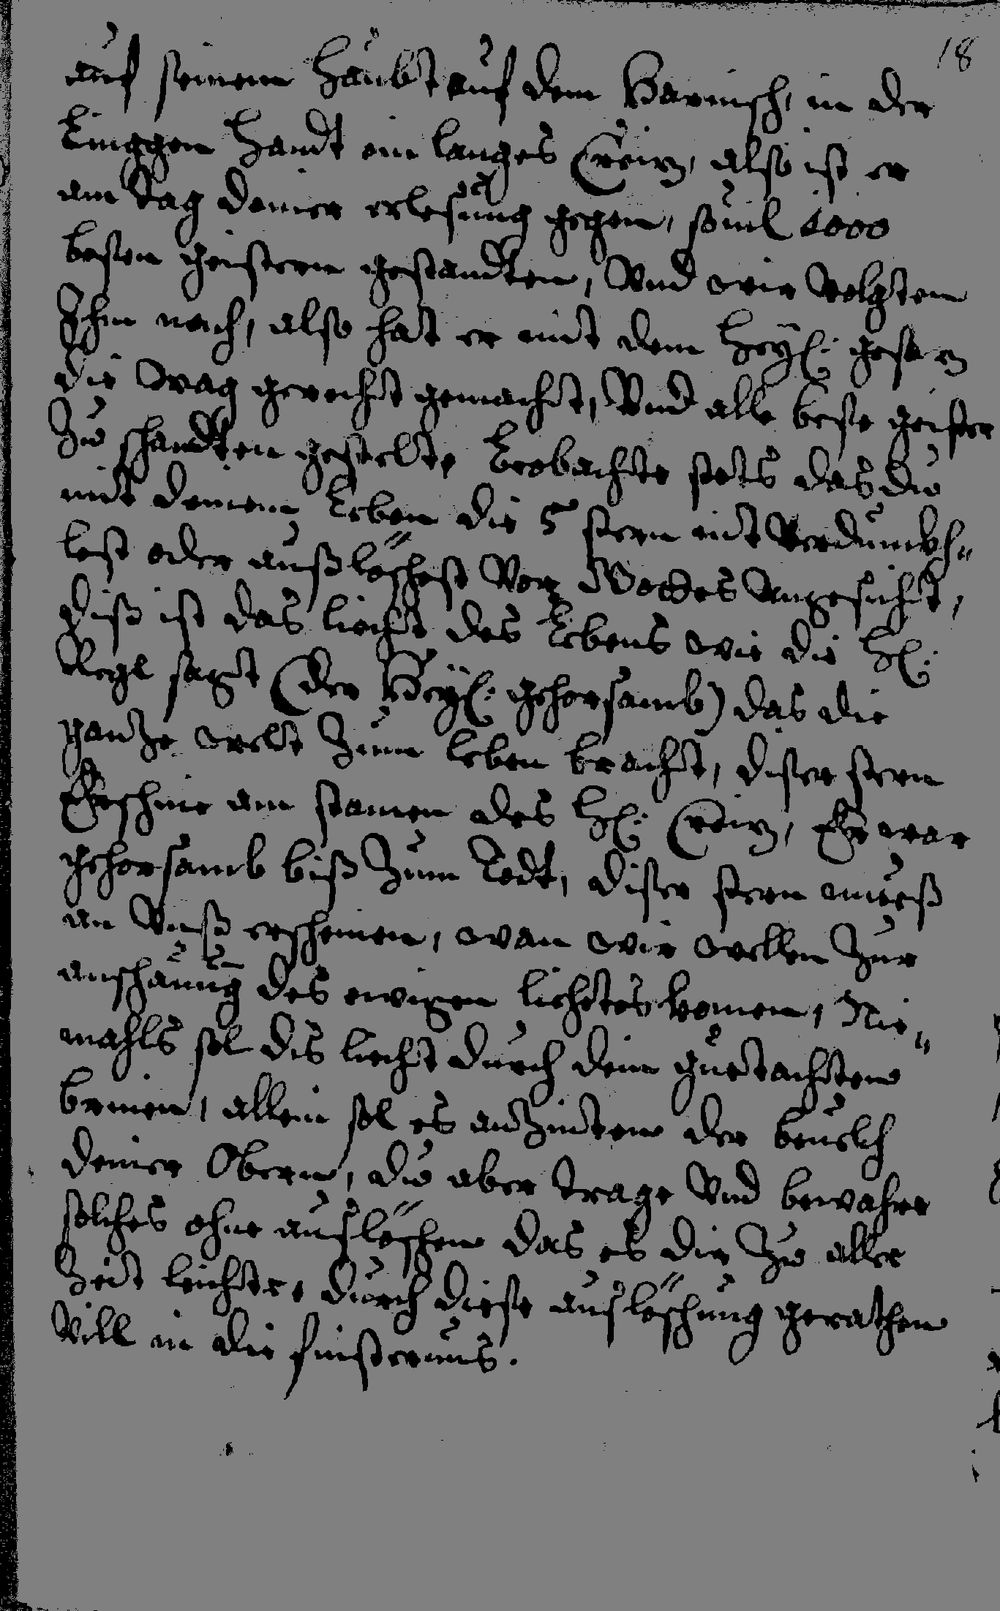 18
auf seinem Haubt auf dem Harnisch, in der
Linggen Handt ein langes Creiz, also ist er
am Tag deiner erlesung gegen, souil 1000
besen geistern gestandten, Vnd wir Volgten
Ihm nach, also hat er mit dem Heyl: gesaz
die Wag gerecht gemacht, Vnd alle bese geister
Zu schandten gestelt, beobachte stets das du
mit deinem Leben die 5 stern nit Verdunckh„
lest oder außlöschest Vor Gottes Angesicht,
diß ist das liecht des Lebens wie die Hl:
Regl sagt (der Heyl: gehorsamb) das die
ganze Welt Zum leben bracht, diser stern
Erschine am stamen des Hl: Creiz, Er war
gehorsamb biß Zum Todt, diser stern mueß
an Vnß erscheinen, wan wir wellen Zur
anschauung des ewigen liechtes komen, Nie„
mahls sol dis liecht durch dein guetachten
brinen, allein sol es anZinten der beuelch
deiner Obern, du aber trage Vnd bewahre
solches ohne auslöschen das es dir Zu aller
Zeit leichte, durch diese auslöschung gerathen
Vill in die finsternus.